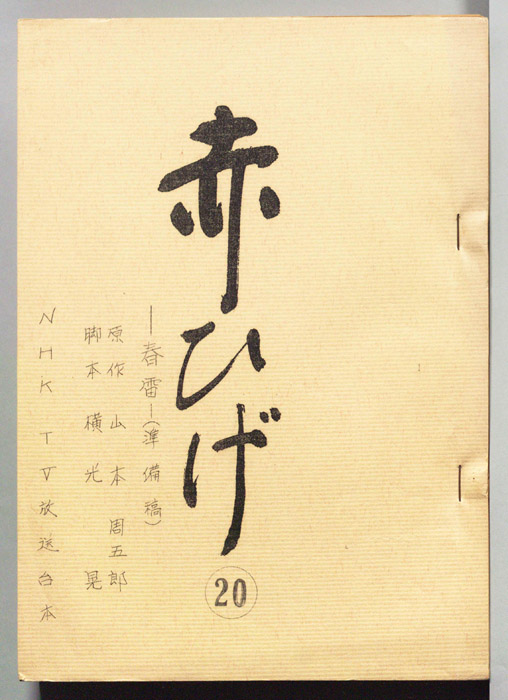 赤ひげ
20
―春雷―(準備稿)
原作 山本周五郎
脚本 横光 晃
NHK TV放送台本